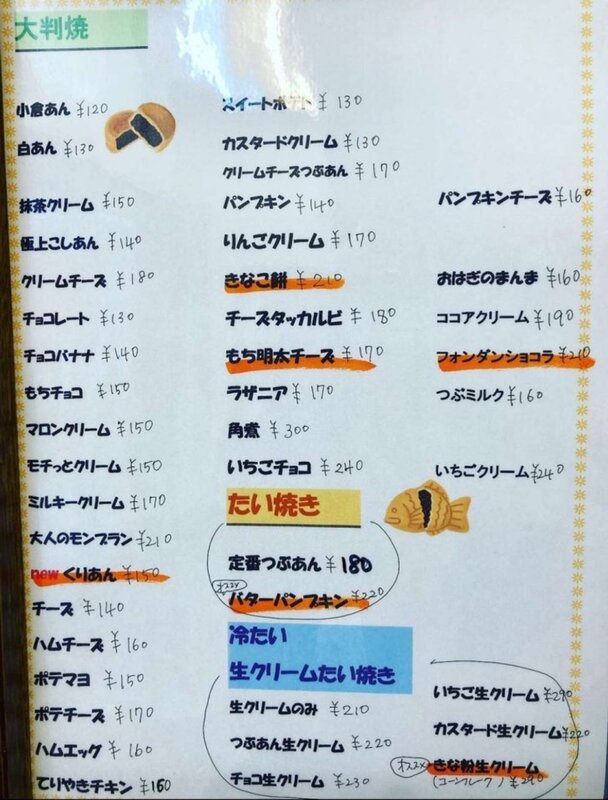 大判焼
小倉あん ¥120
白あん ¥130
抹茶クリーム ¥150
極上こしあん ¥140
クリームチーズ ¥180
チョコレート ¥130
チョコバナナ ¥140
もちチョコ ¥150
マロンクリーム ¥150
モチっとクリーム ¥150
ミルキークリーム ¥170
大人のモンブラン ¥210
new くりあん ¥150
チーズ ¥140
ハムチーズ ¥160
ポテマヨ ¥150
ポテチーズ ¥170
ハムエッグ ¥160
てりやきチキン ¥160
スイートポテト ¥130
カスタードクリーム ¥130
クリームチーズつぶあん ¥170
パンプキン ¥140
りんごクリーム ¥170
きなこ餅 ¥210
チーズタッカルビ ¥180
もち明太チーズ ¥170
ラザニア ¥170
角煮 ¥300
いちごチョコ ¥240
パンプキンチーズ ¥160
おはぎのまんま ¥160
ココアクリーム ¥190
フォンダンショコラ ¥210
つぶミルク ¥160
いちごクリーム ¥240
たい焼き
定番つぶあん ¥180
オススメ
バターパンプキン ¥220
冷たい
生クリームたい焼き
生クリームのみ ¥210
つぶあん生クリーム ¥220
チョコ生クリーム ¥230
いちご生クリーム ¥290
カスタード生クリーム ¥220
オススメ きな粉生クリーム
(コーンフレーク) ¥290